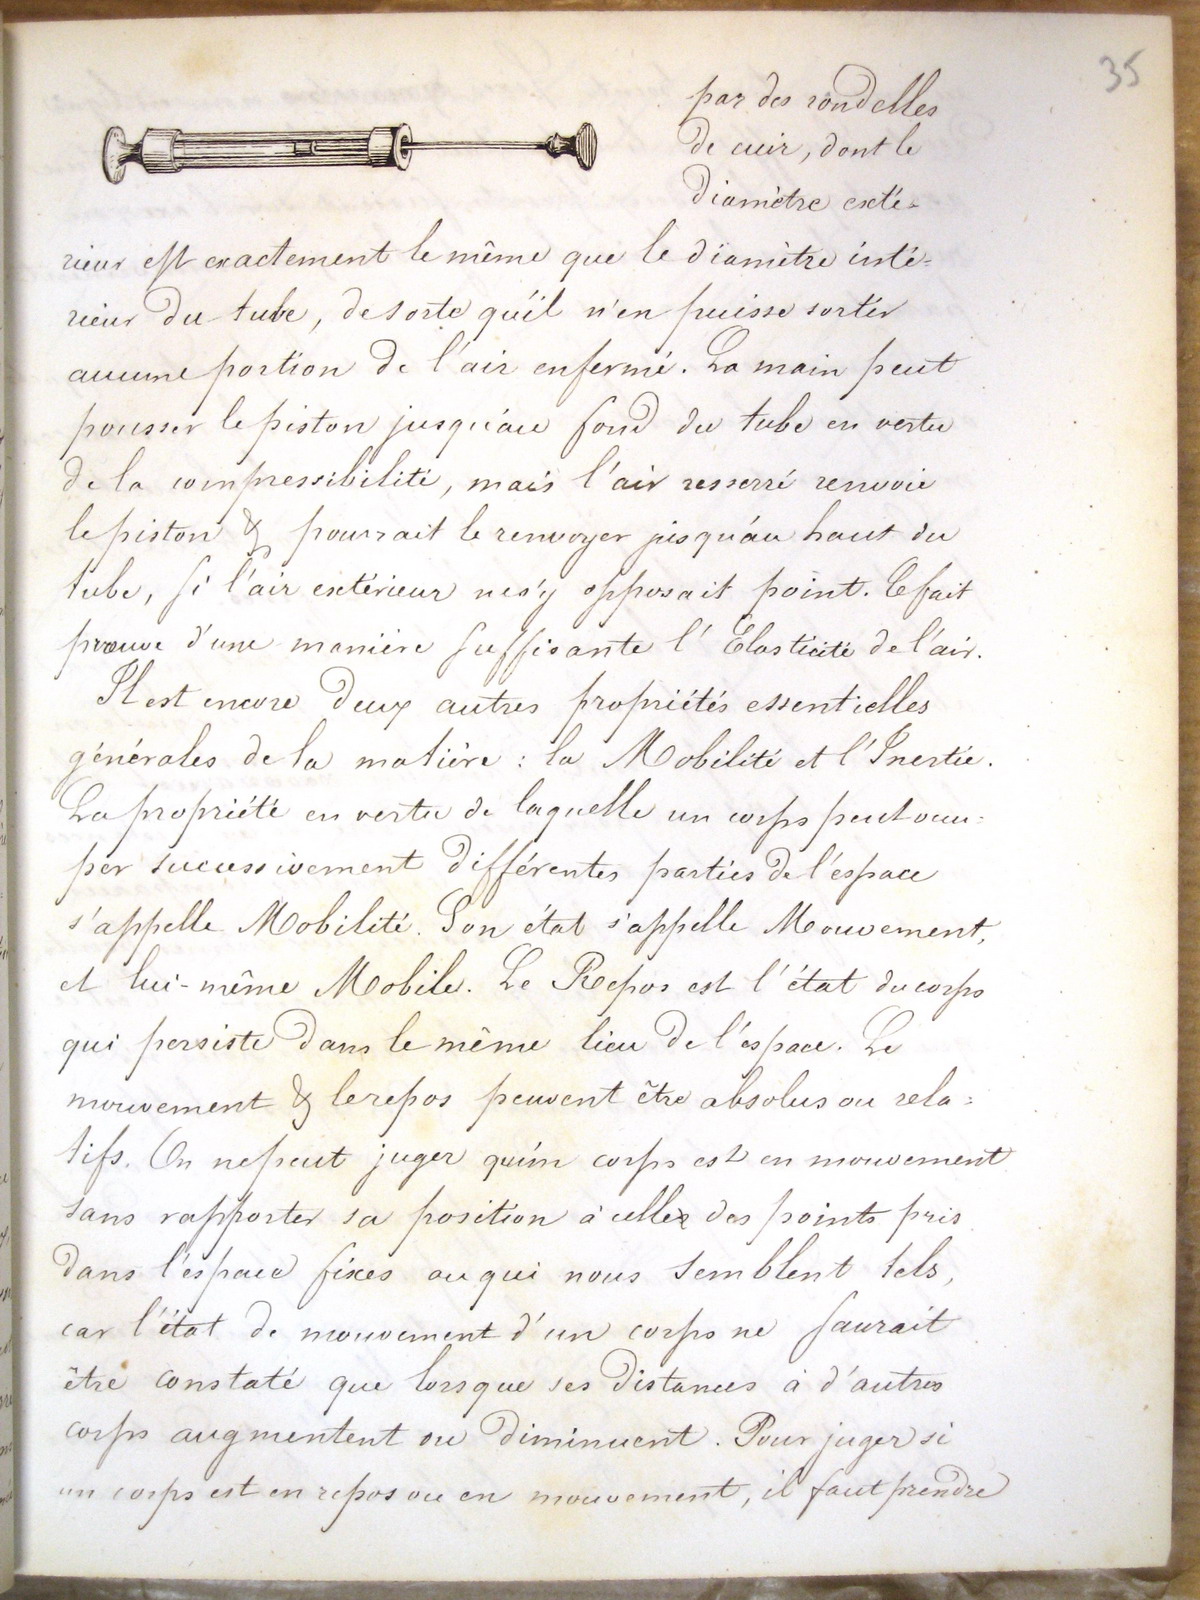 35
par des rondelles
de cuir, dont le
diamètre exté=
rieur est exactement le même que le diamètre inté=
rieur du tube, de sorte qu'il n'en puisse sortir
aucune portion de l'air enfermé. La main peut
pousser le piston jusqu'au fond du tube en vertu
de la compressibilité, mais l'air resserré renvoie
le piston & pourrait le renvoyer jusqu'au haut du
tube, si l'air extérieur ne s'y opposait point. Ce fait
prouve d'une manière suffisante l'Elasticité de l'air.
Il est encore deux autres propriétés essentielles
générales de la matière : la Mobilité et l'Inertie.
La propriété en vertu de laquelle un corps peut occu=
per successivement différentes parties de l'espace
s'appelle Mobilité. Son état s'appelle Mouvement,
et lui-même Mobile. Le Repos est l'état du corps
qui persiste dans le même lieu de l'espace. Le
mouvement & le repos peuvent être absolus ou rela=
tifs. On ne peut juger qu'un corps est en mouvement
sans rapporter sa position à celle des points pris
dans l'espace fixes ou qui nous semblent tels,
car l'état de mouvement d'un corps ne saurait
être constaté que lorsque ses distances à d'autres
corps augmentent ou diminuent. Pour juger si
un corps est en repos ou en mouvement, il faut prendre